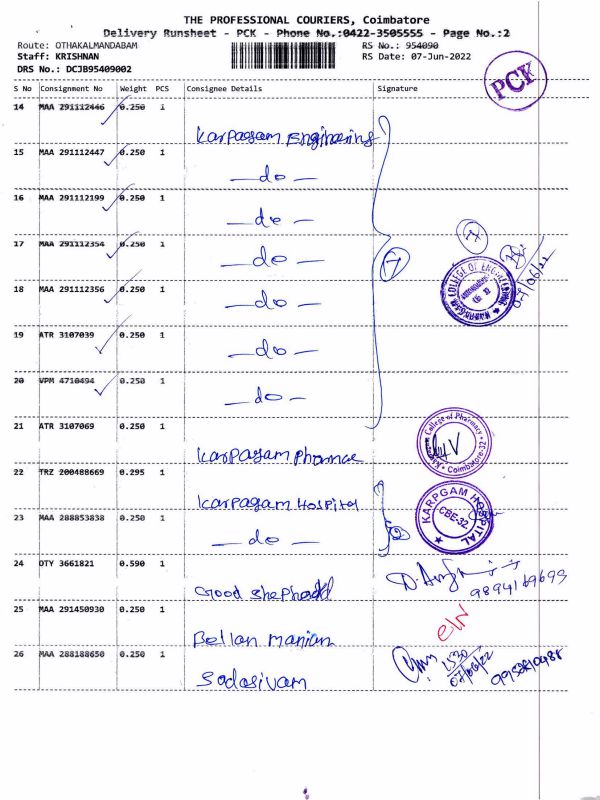 THE PROFESSIONAL COURIERS, Coimbatore
Delivery Runsheet - PCK - Phone No.:0422-3505555 - Page No.:2
Route: OTHAKALMANDABAM
RS No.: 954090
Staff: KRISHNAN
RS Date: 07-Jun-2022
DRS No.: DCJB95409002
PCK
S No Consignment No Weight PCS Consignee Details Signature
14 MAA 291112446 0.250 1
Karpagam Engineering
15 MAA 291112447 0.250 1
—do—
16 MAA 291112199 0.250 1
—do—
17 MAA 291112354 0.250 1
—do— 7 7
18 MAA 291112356 0.250 1
—do— 07/06/22
KARPAGAM COLLEGE OF ENGINEERING
19 ATR 3107039 0.250 1
—do—
20 VPM 4710494 0.250 1
—do—
21 ATR 3107069 0.250 1
Karpagam Pharmce
Karpagam College of Pharmacy Coimbatore-32
22 TRZ 200488669 0.295 1
Karpagam Hospital
KARPGAM HOSPITAL CBE-32
23 MAA 288853838 0.250 1
—do— 2
24 OTY 3661821 0.590 1
Good Shephard 9894169699
25 MAA 291450930 0.250 1
Bellan Manian
26 MAA 288188650 0.250 1
Sadasivam 1530 07/06/22